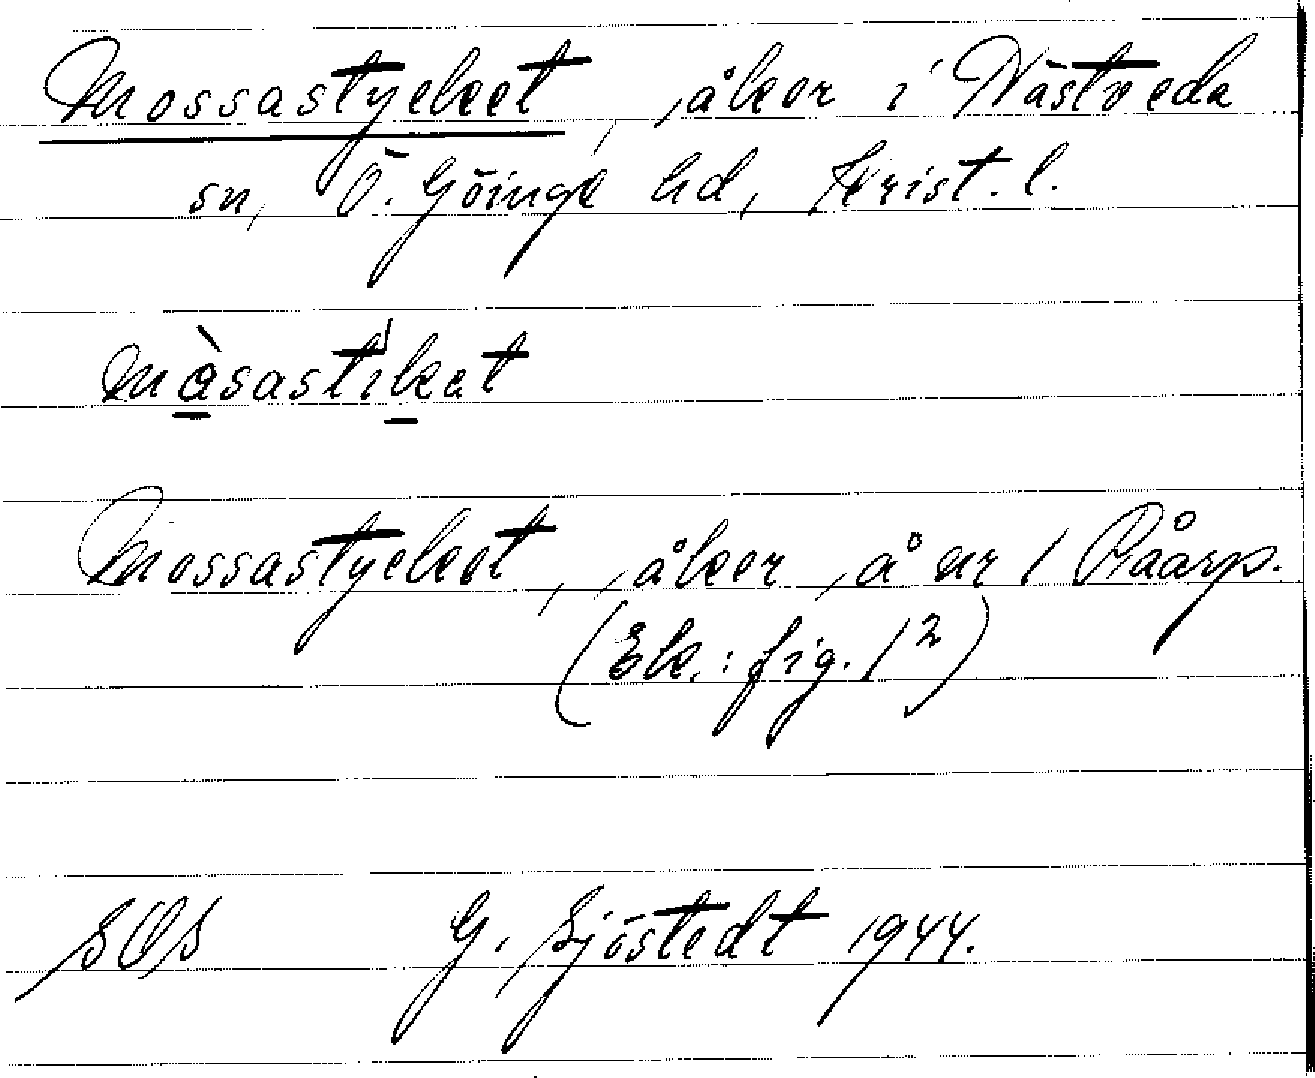 Mossastycket, åker i Nästveda
sn, Ö. Göinge hd, Krist. l.
måsastikat
Mossastycket, åker, å nr 1 Råarp.
(Ek.: fig. 1²)
SOS G. Sjöstedt 1944.